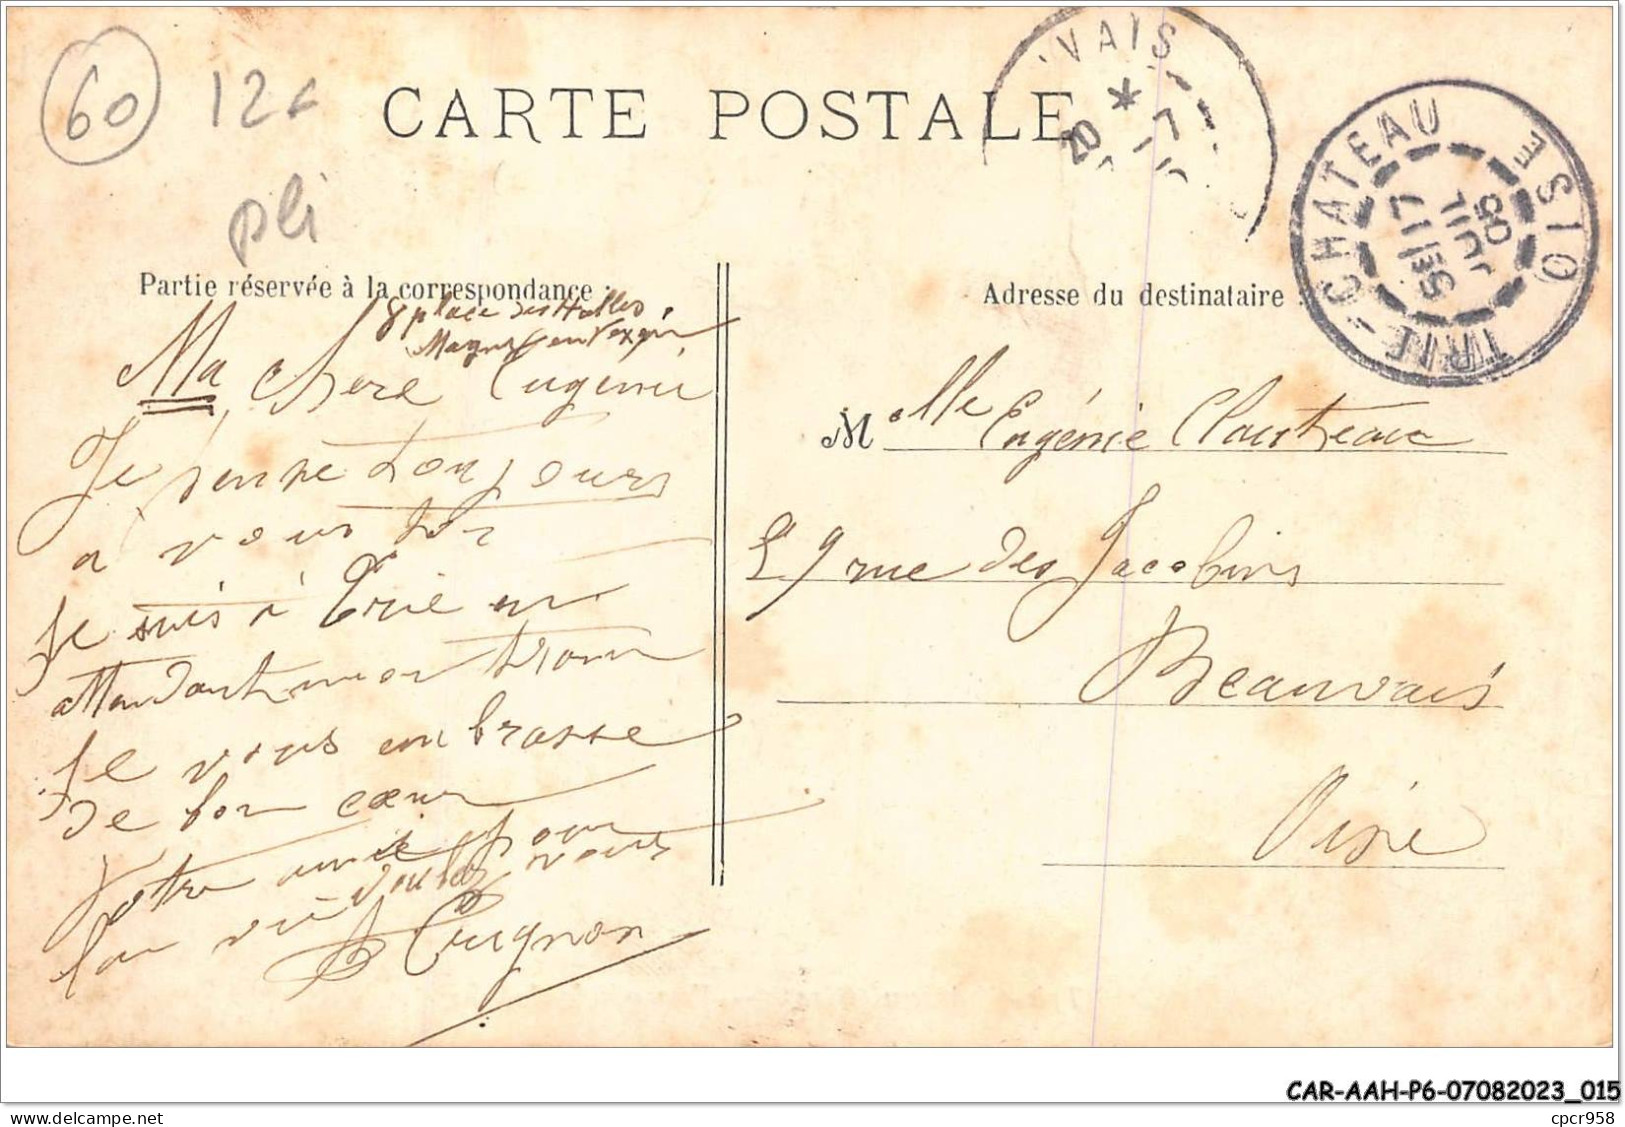 60 12€
pli
CARTE POSTALE
VAIS
* 7
20
CHATEAU
TRIE-
OISE
17 35
JUIL
05
Partie réservée à la correspondance :
Adresse du destinataire :
8 place des Halles
Magny en Vexin
Ma chère Eugénie
Je pense toujours
a vous tos
Je suis à Trie en
attendant mon train
Je vous embrasse
de bon cœur
Votre amie pour
la vie voulez vous
Cugnon
Melle Eugénie
59 rue des Jacobins
Beauvais
Oise
CAR-AAH-P6-07082023_015
cpcr958